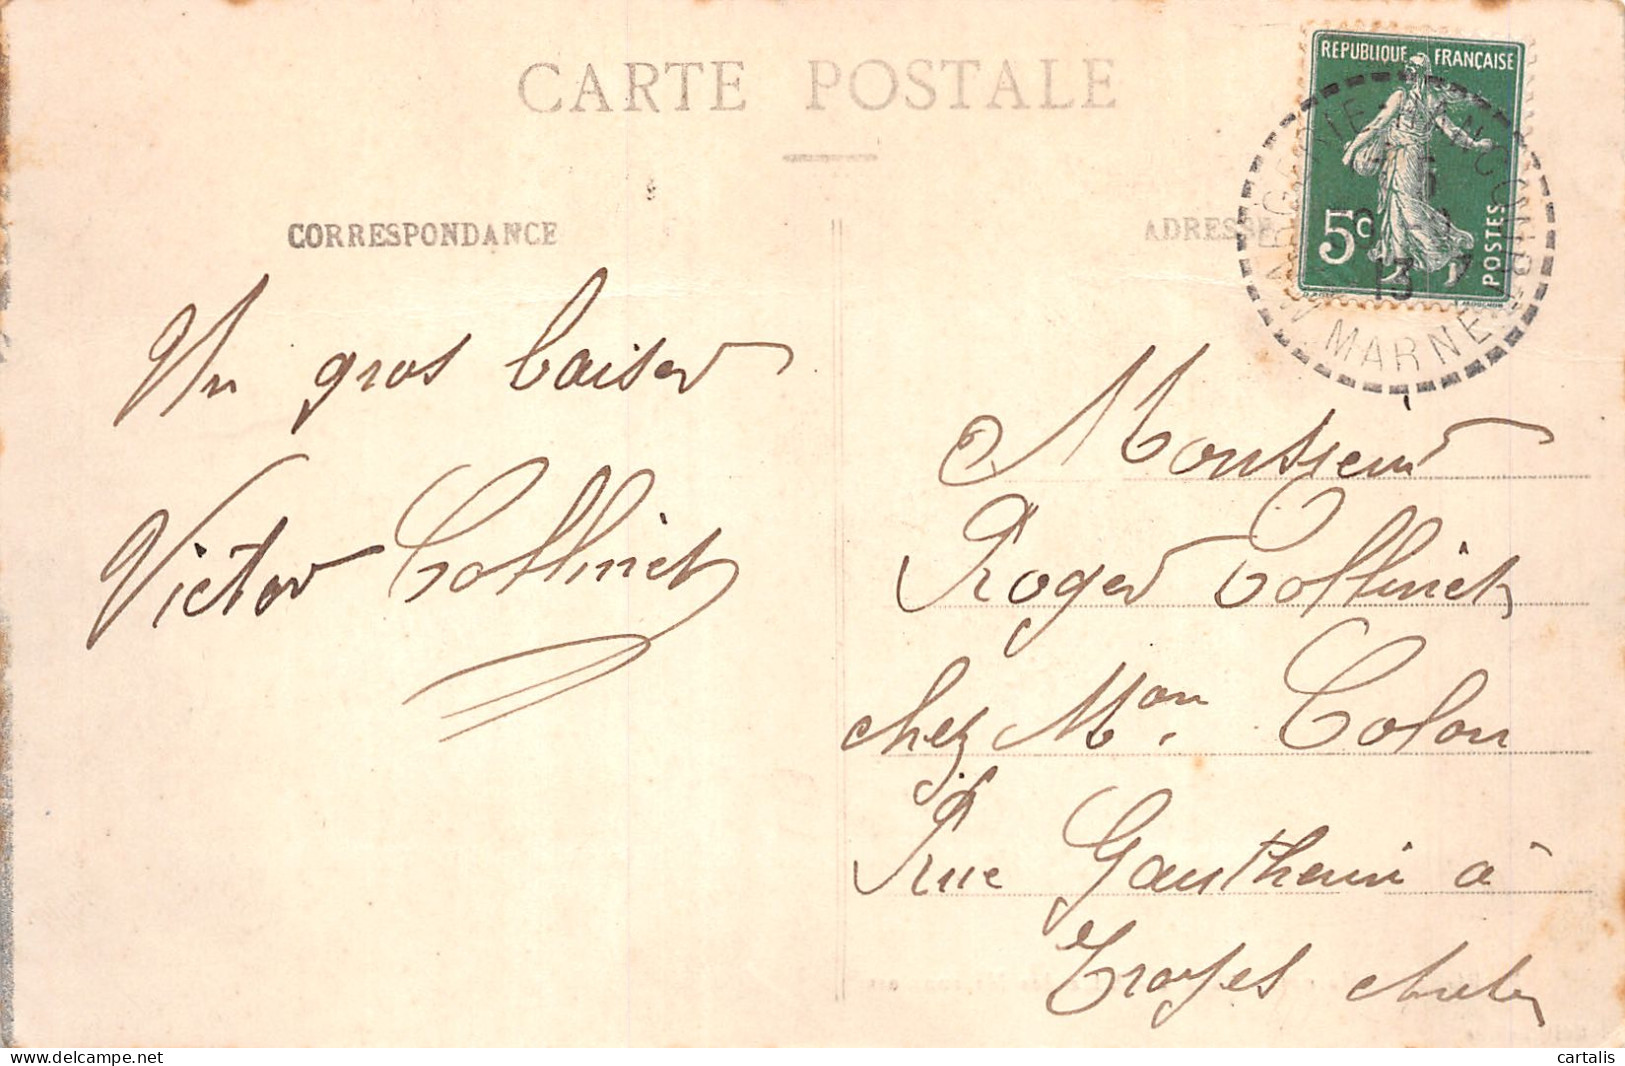 CARTE POSTALE
CORRESPONDANCE
ADRESSE
REPUBLIQUE FRANÇAISE
5c
POSTES
13
MARNE
Un gros baiser
Victor Collinet
Monsieur
Roger Collinet
chez Mon. Colon
Rue Gautherin à
Troyes Aube
cartalis